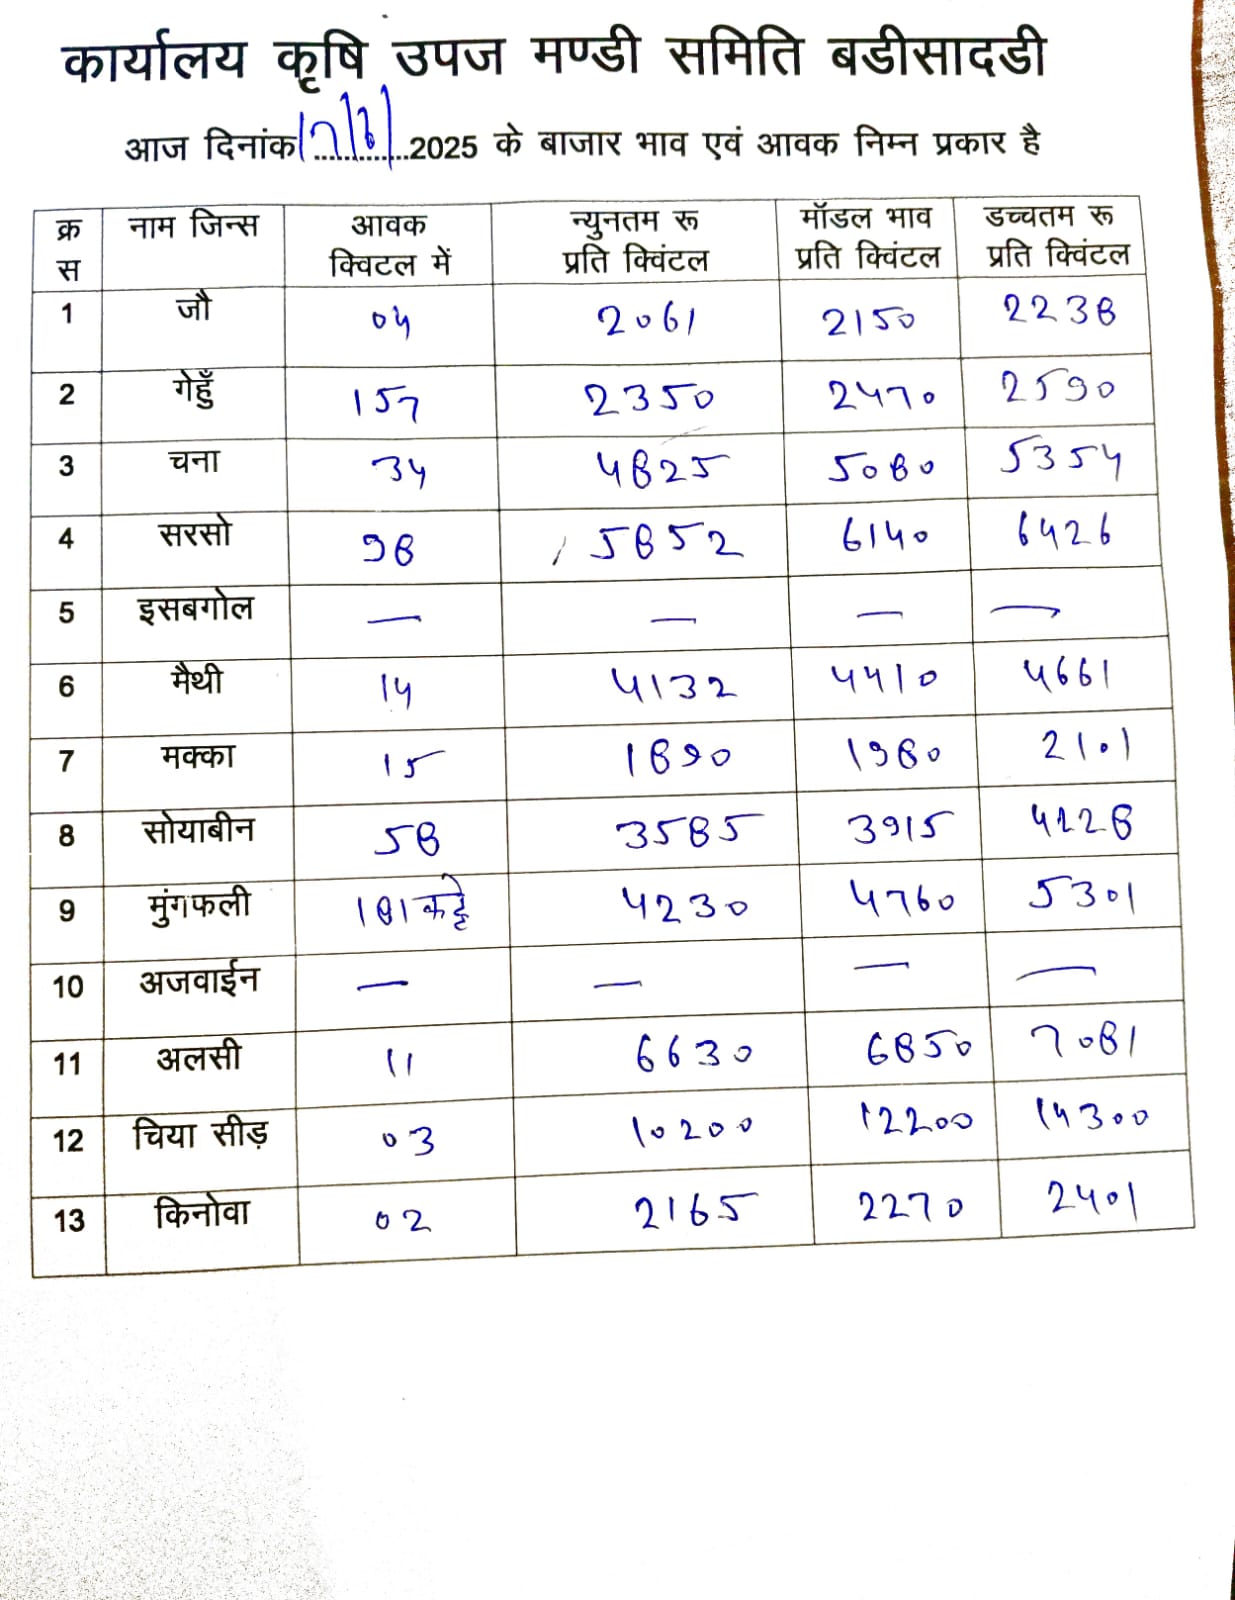 कार्यालय कृषि उपज मण्डी समिति बडीसादडी
आज दिनांक 17/6/2025 के बाजार भाव एवं आवक निम्न प्रकार है
क्र स नाम जिन्स आवक क्विटल में न्युनतम रू प्रति क्विंटल मॉडल भाव प्रति क्विंटल डच्चतम रू प्रति क्विंटल
1 जौ 04 2061 2150 2238
2 गेहुँ 157 2350 2470 2590
3 चना 34 4825 5080 5354
4 सरसो 98 5852 6140 6426
5 इसबगोल — — — —
6 मैथी 14 4132 4410 4661
7 मक्का 15 1890 1980 2101
8 सोयाबीन 58 3585 3915 4228
9 मुंगफली 181 कट्टे 4230 4760 5301
10 अजवाईन — — — —
11 अलसी 11 6630 6850 7081
12 चिया सीड़ 03 10200 12200 14300
13 किनोवा 02 2165 2270 2401